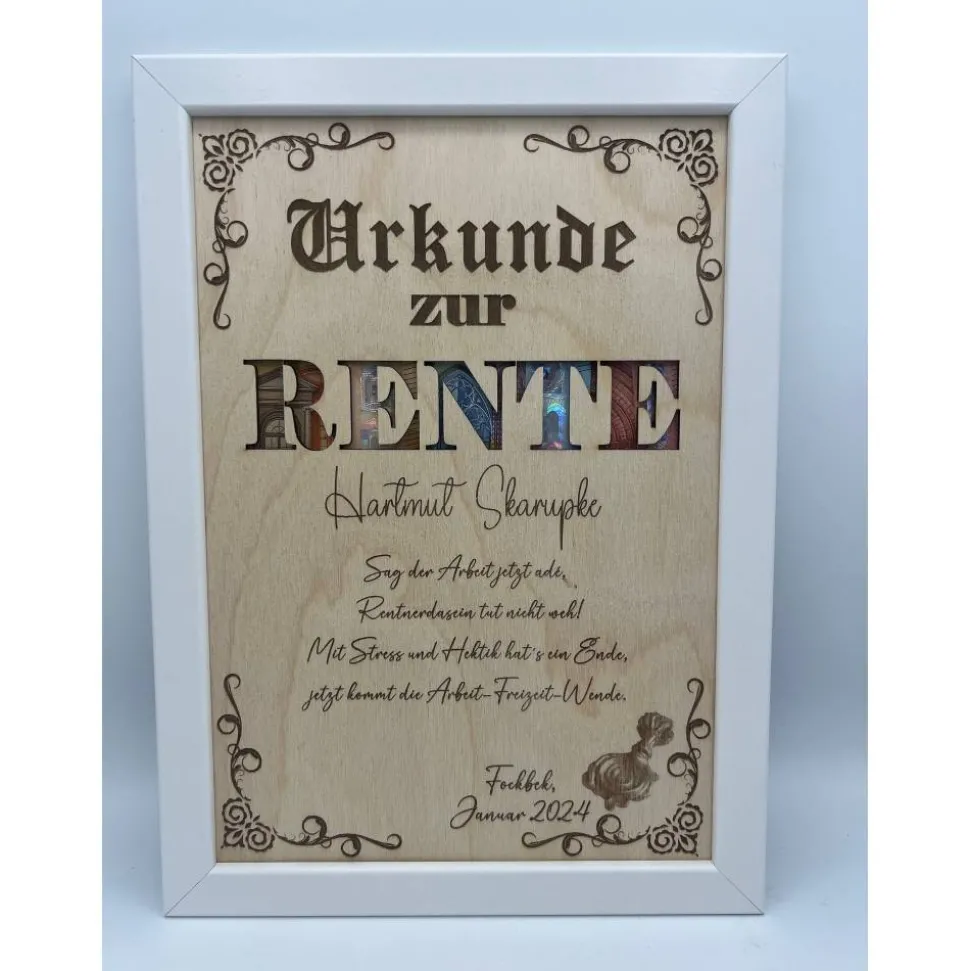 Urkunde
zur
RENTE
Hartmut Skarupke
Sag der Arbeit jetzt adé,
Rentnerdasein tut nicht weh!
Mit Stress und Hektik hat's ein Ende,
jetzt kommt die Arbeit-Freizeit-Wende.
Fockbek,
Januar 2024